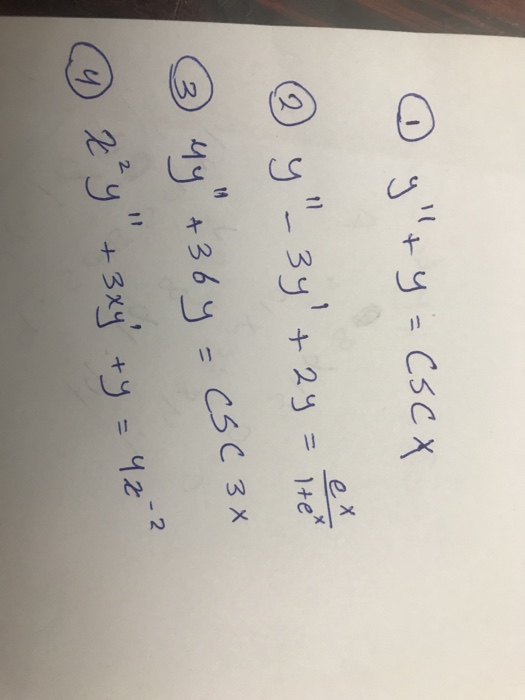 ① y" + y = CSC x
② y" - 3y' + 2y = e^x/1+e^x
③ 4y" + 36y = CSC 3x
④ x²y" + 3xy' + y = 4x⁻²